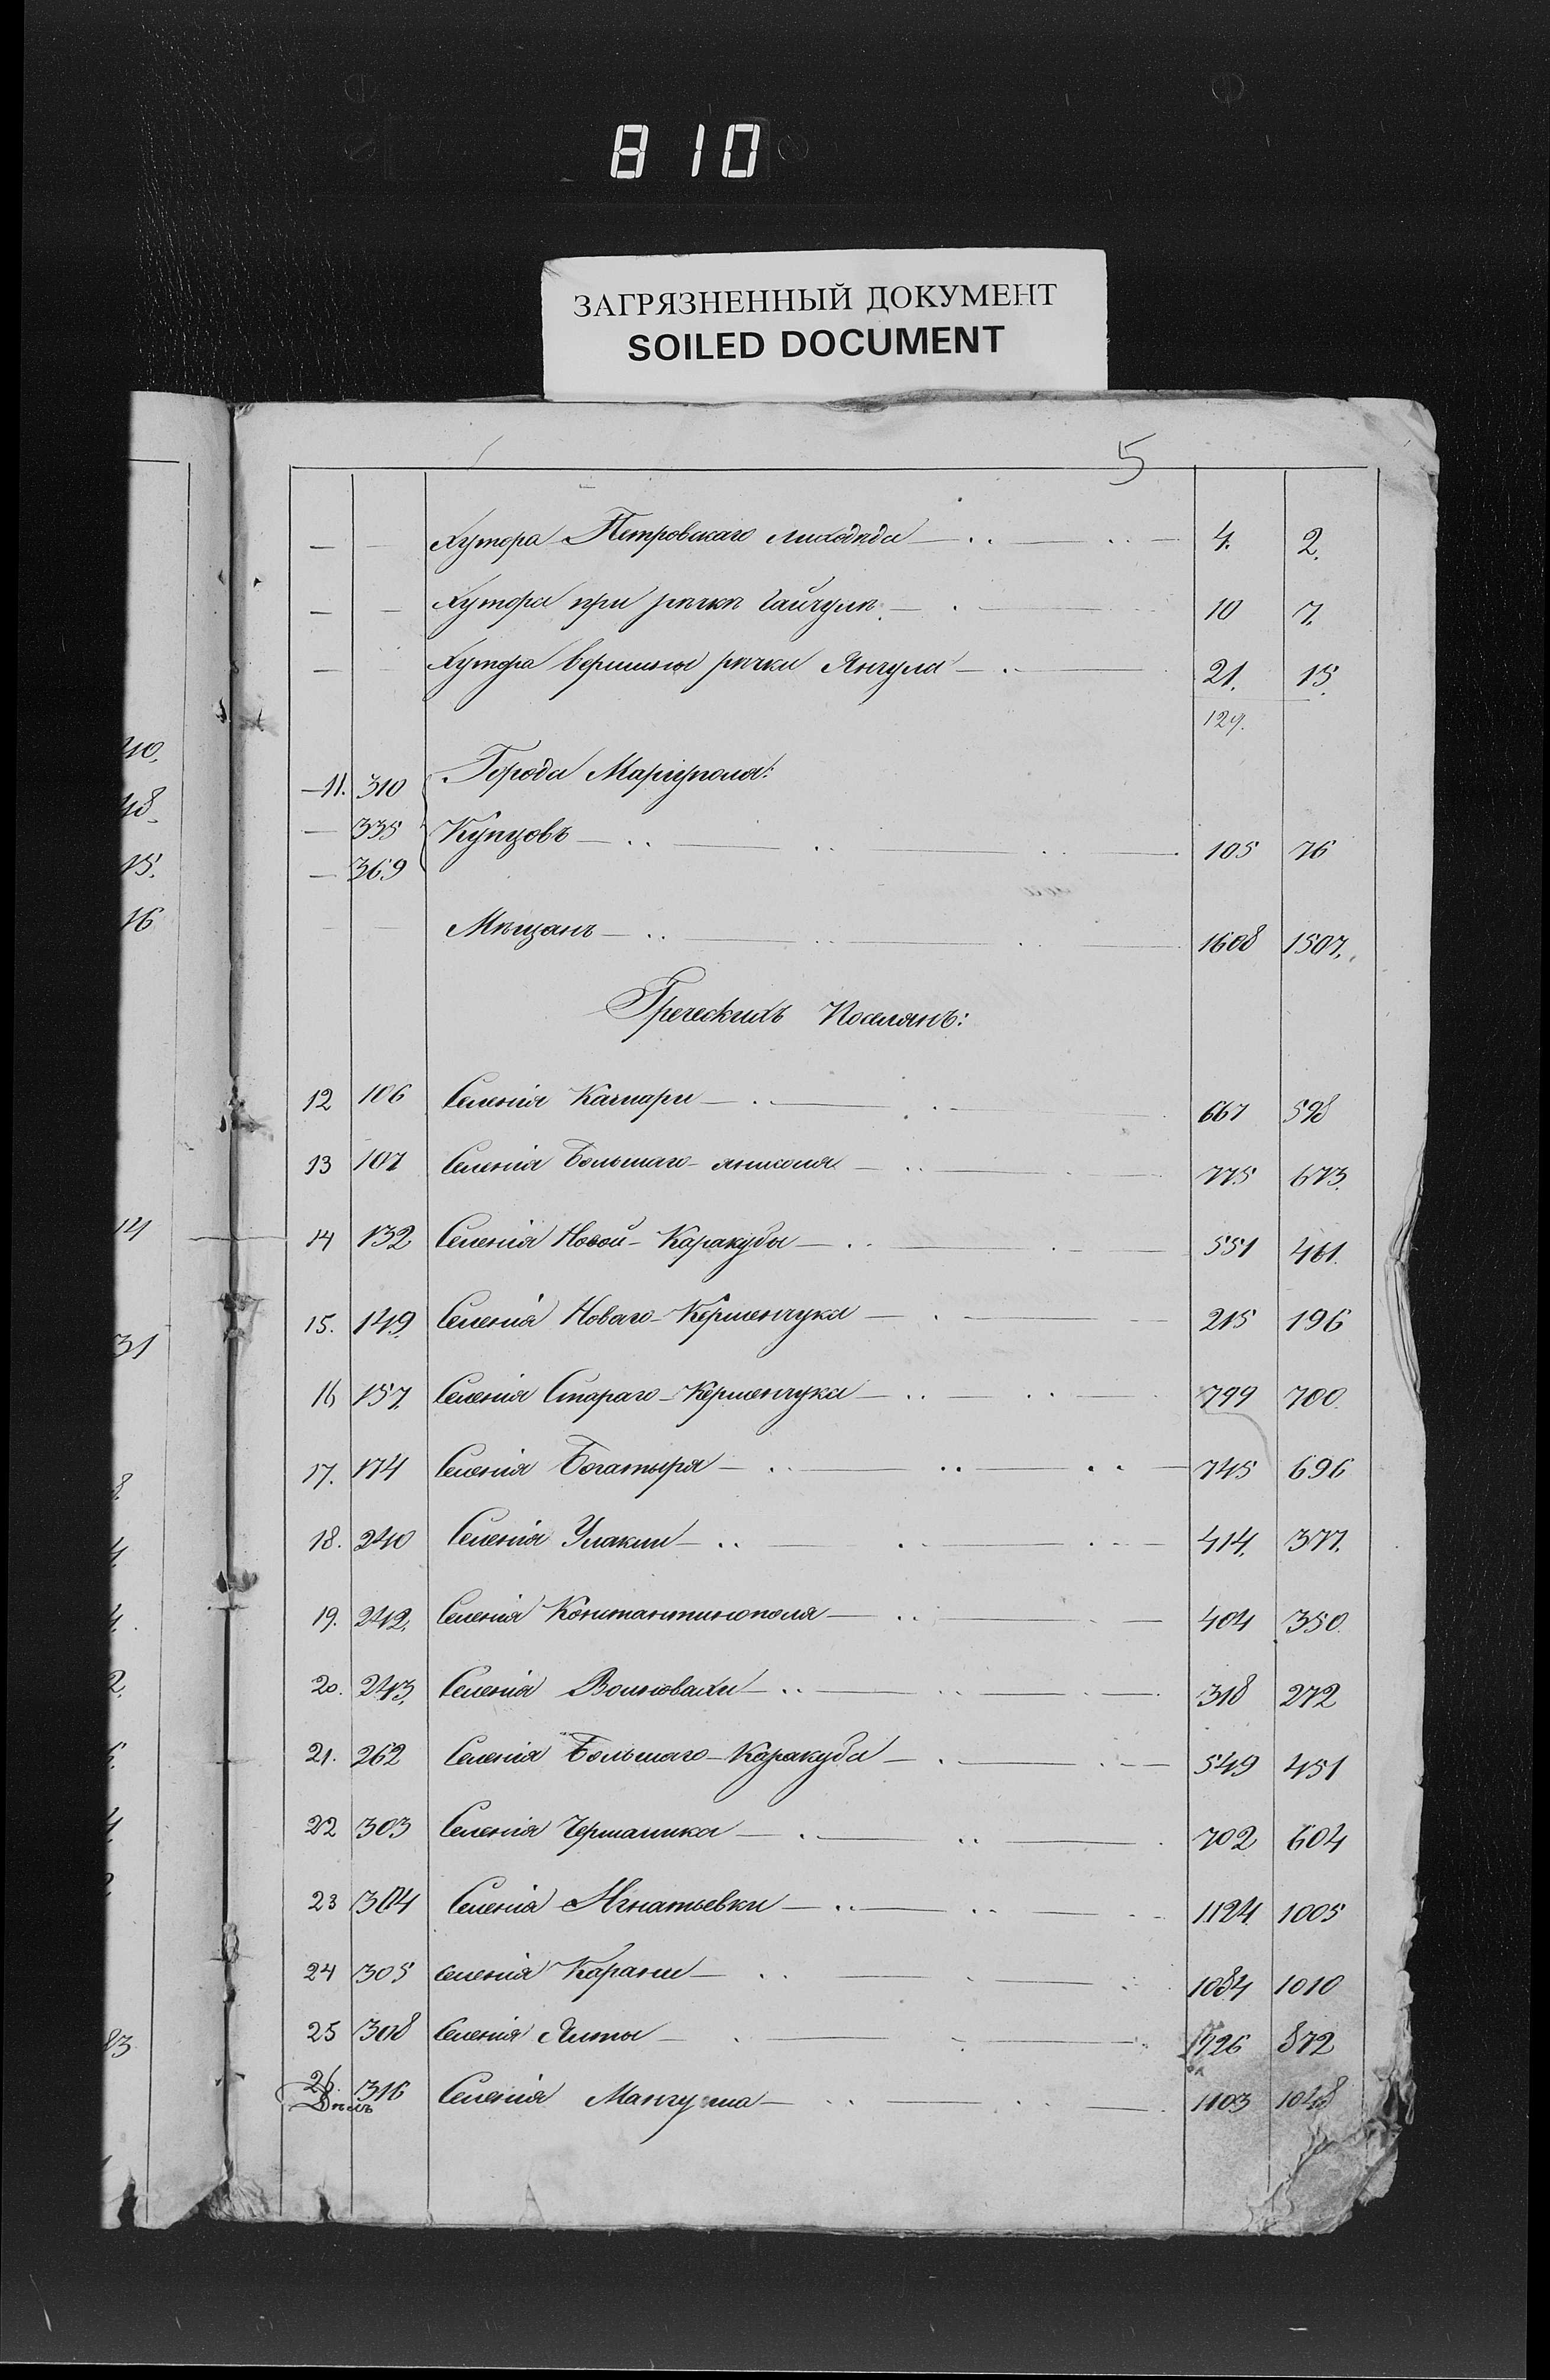 810
ЗАГРЯЗНЕННЫЙ ДОКУМЕНТ
SOILED DOCUMENT
5
— — Хутора Петровскаго Лиходѣда 4. 2.
— — Хутора при рѣчкѣ Гайчулѣ 10 7.
— — Хутора вершины рѣчки Янчула 21. 15.
129.
11. 310 Города Маріуполя:
— 335 Купцовъ 105 76
— 369
— — Мѣщанъ 1608 1507.
Греческихъ Поселянъ:
12 106 Селенія Камари 667 598
13 107 Селенія Большаго-Янисоля 775 673.
14 132 Селенія Новой-Каракубы 551 461.
15. 149. Селенія Новаго-Керменчука 215 196
16 157. Селенія Стараго-Керменчука 799 700.
17. 174 Селенія Богатыря 745 696
18. 240 Селенія Улаклы 414. 377.
19. 242. Селенія Константинополя 404 350.
20. 243. Селенія Волновахи 318 272
21. 262 Селенія Большаго-Каракуба 549 451
22 303 Селенія Чермалика 702 604
23 304 Селенія Игнатьевки 1124. 1005
24 305 Селенія Карани 1084 1010
25 308 Селенія Ялты 926 872
26. 316 Селенія Мангуша 1103 1048
10.
48.
15.
16
14
31
8.
4.
4.
2.
4.
2
83